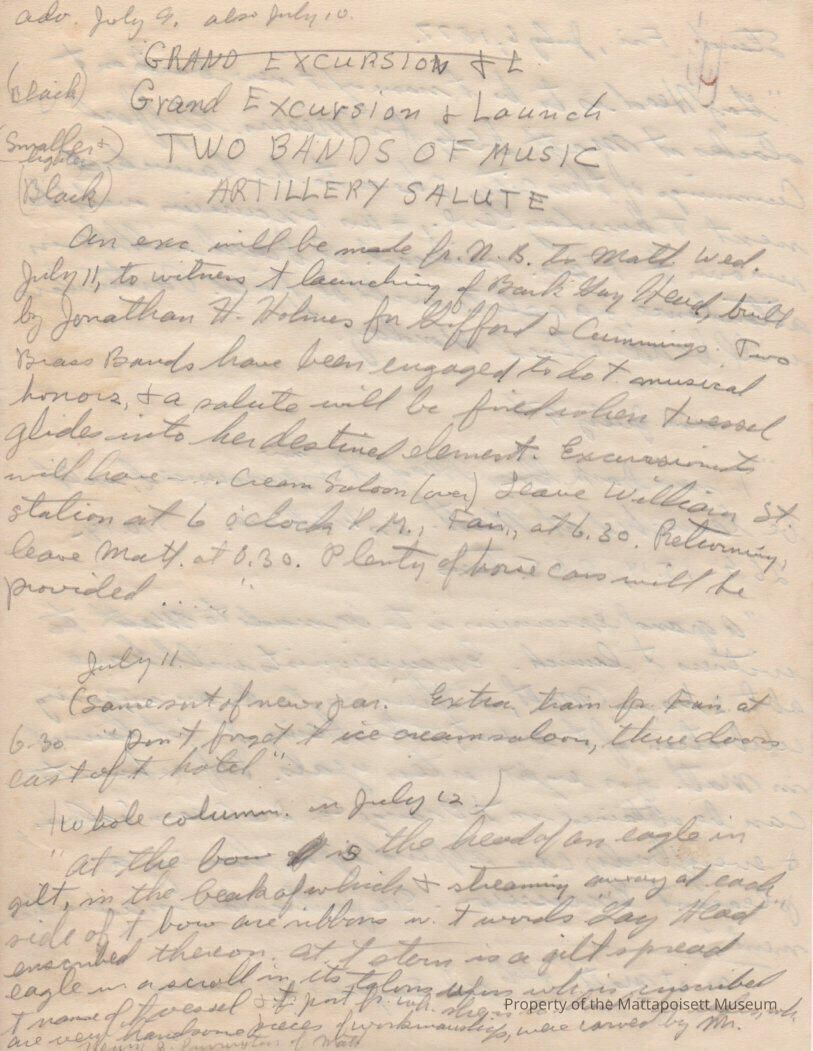 adv. July 9. also July 10.
GRAND EXCURSION & L
(Black) Grand Excursion & Launch
(Smaller & lighter) TWO BANDS OF MUSIC
(Black) ARTILLERY SALUTE
An exc. will be made fr. N.B. to Matt. Wed.
July 11, to witness t launching of Bark Gay Head, built
by Jonathan H. Holmes for Gifford & Cummings. Two
Brass Bands have been engaged to do t musical
honors, & a salute will be fired when t vessel
glides into her destined element. Excursionists
will have .... Cream Saloon (over) Leave William St.
station at 6 o'clock P.M., Fair., at 6.30. Returning,
leave Matt. at 8.30. Plenty of horse cars will be
provided ... "
July 11
(Same sort of news par. Extra train fr. Fair. at
6.30 "Don't forget t ice cream saloon, three doors
east of t hotel"
(Whole column in July 12.)
"At the bow is the head of an eagle in
gilt, in the beak of which & streaming away at each
side of t bow are ribbons w. t words "Gay Head"
enscribed thereon. At t stern is a gilt spread
eagle w. a scroll in its talons upon wh. is inscribed
t name of t vessel & t port fr. wh. she
are very handsome pieces of workmanship, were carved by Mr.
Henry Purrington of Matt
Property of the Mattapoisett Museum